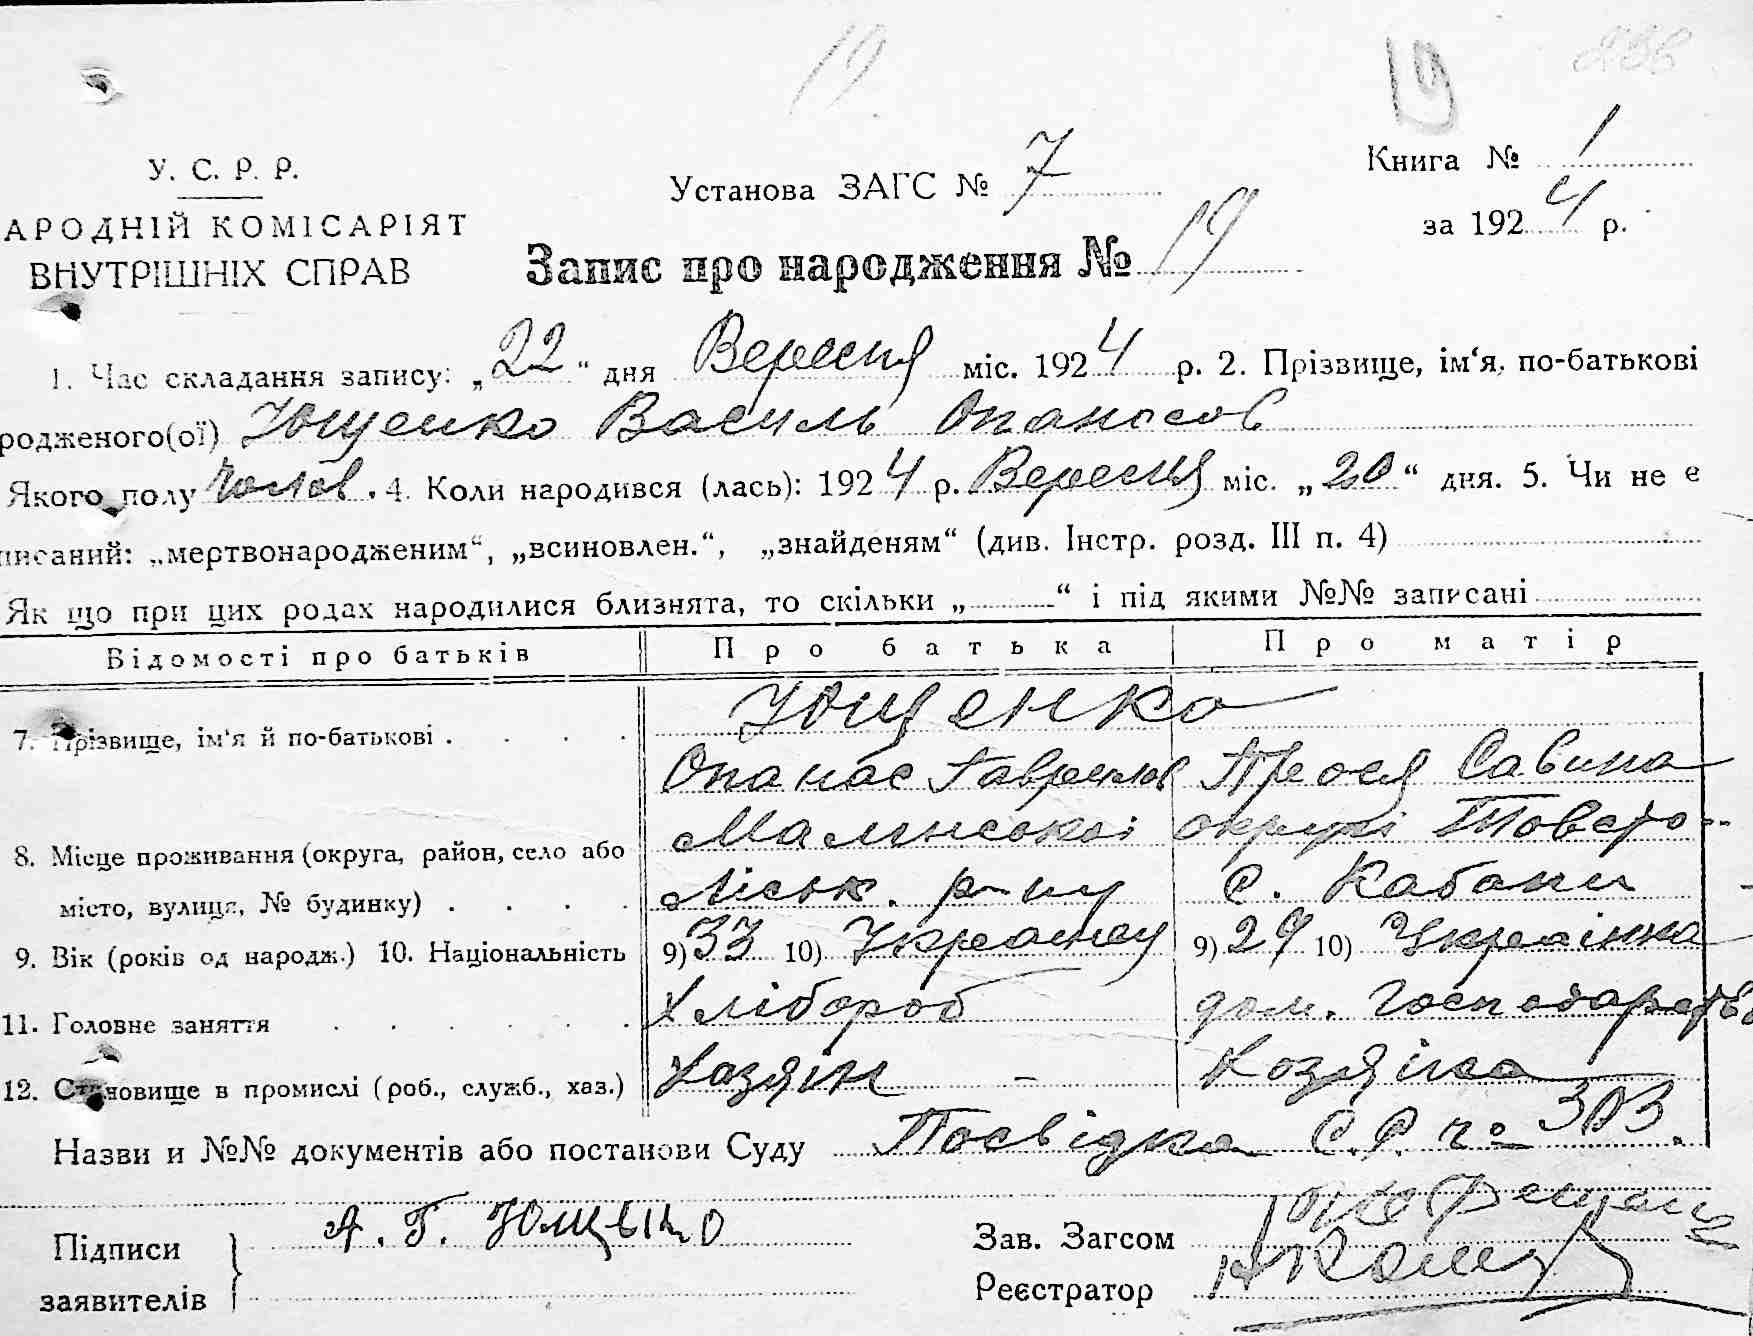 19
19
236
У. С. Р. Р.
АРОДНІЙ КОМІСАРІЯТ
ВНУТРІШНІХ СПРАВ
Установа ЗАГС № 7
Книга № 1
за 1924 р.
Запис про народження № 19
1. Час складання запису: „22“ дня Вересня міс. 1924 р. 2. Прізвище, ім‘я, по-батькові
родженого(ої) Ющенко Василь Опанасов
Якого полу Чолов. 4. Коли народився (лась): 1924 р. Вересня міс. „20“ дня. 5. Чи не є
писаний: „мертвонародженим“, „всиновлен.“, „знайденям“ (див. Інстр. розд. III п. 4)
Як що при цих родах народилися близнята, то скільки „ “ і під якими №№ записані
Відомості про батьків Про батька Про матір
7. Прізвище, ім‘я й по-батькові . . . . Ющенко
Опанас Гаврилов Прося Савина
8. Місце проживання (округа, район, село або Малинської округі Товсто-
місто, вулиця, № будинку) . . . . ліськ. р-ну с. Кабани
9. Вік (років од народж.) 10. Національність 9) 33 10) Українец 9) 29 10) Українка
11. Головне заняття . . . . . Хлібороб дом. Господарство
12. Становище в промислі (роб., служб., хаз.) Хозяїн - Хозяїка
Назви и №№ документів або постанови Суду Посвідка С.Р. № 303.
Підписи
заявителів
А. Г. Ющенко
Зав. Загсом
Реєстратор